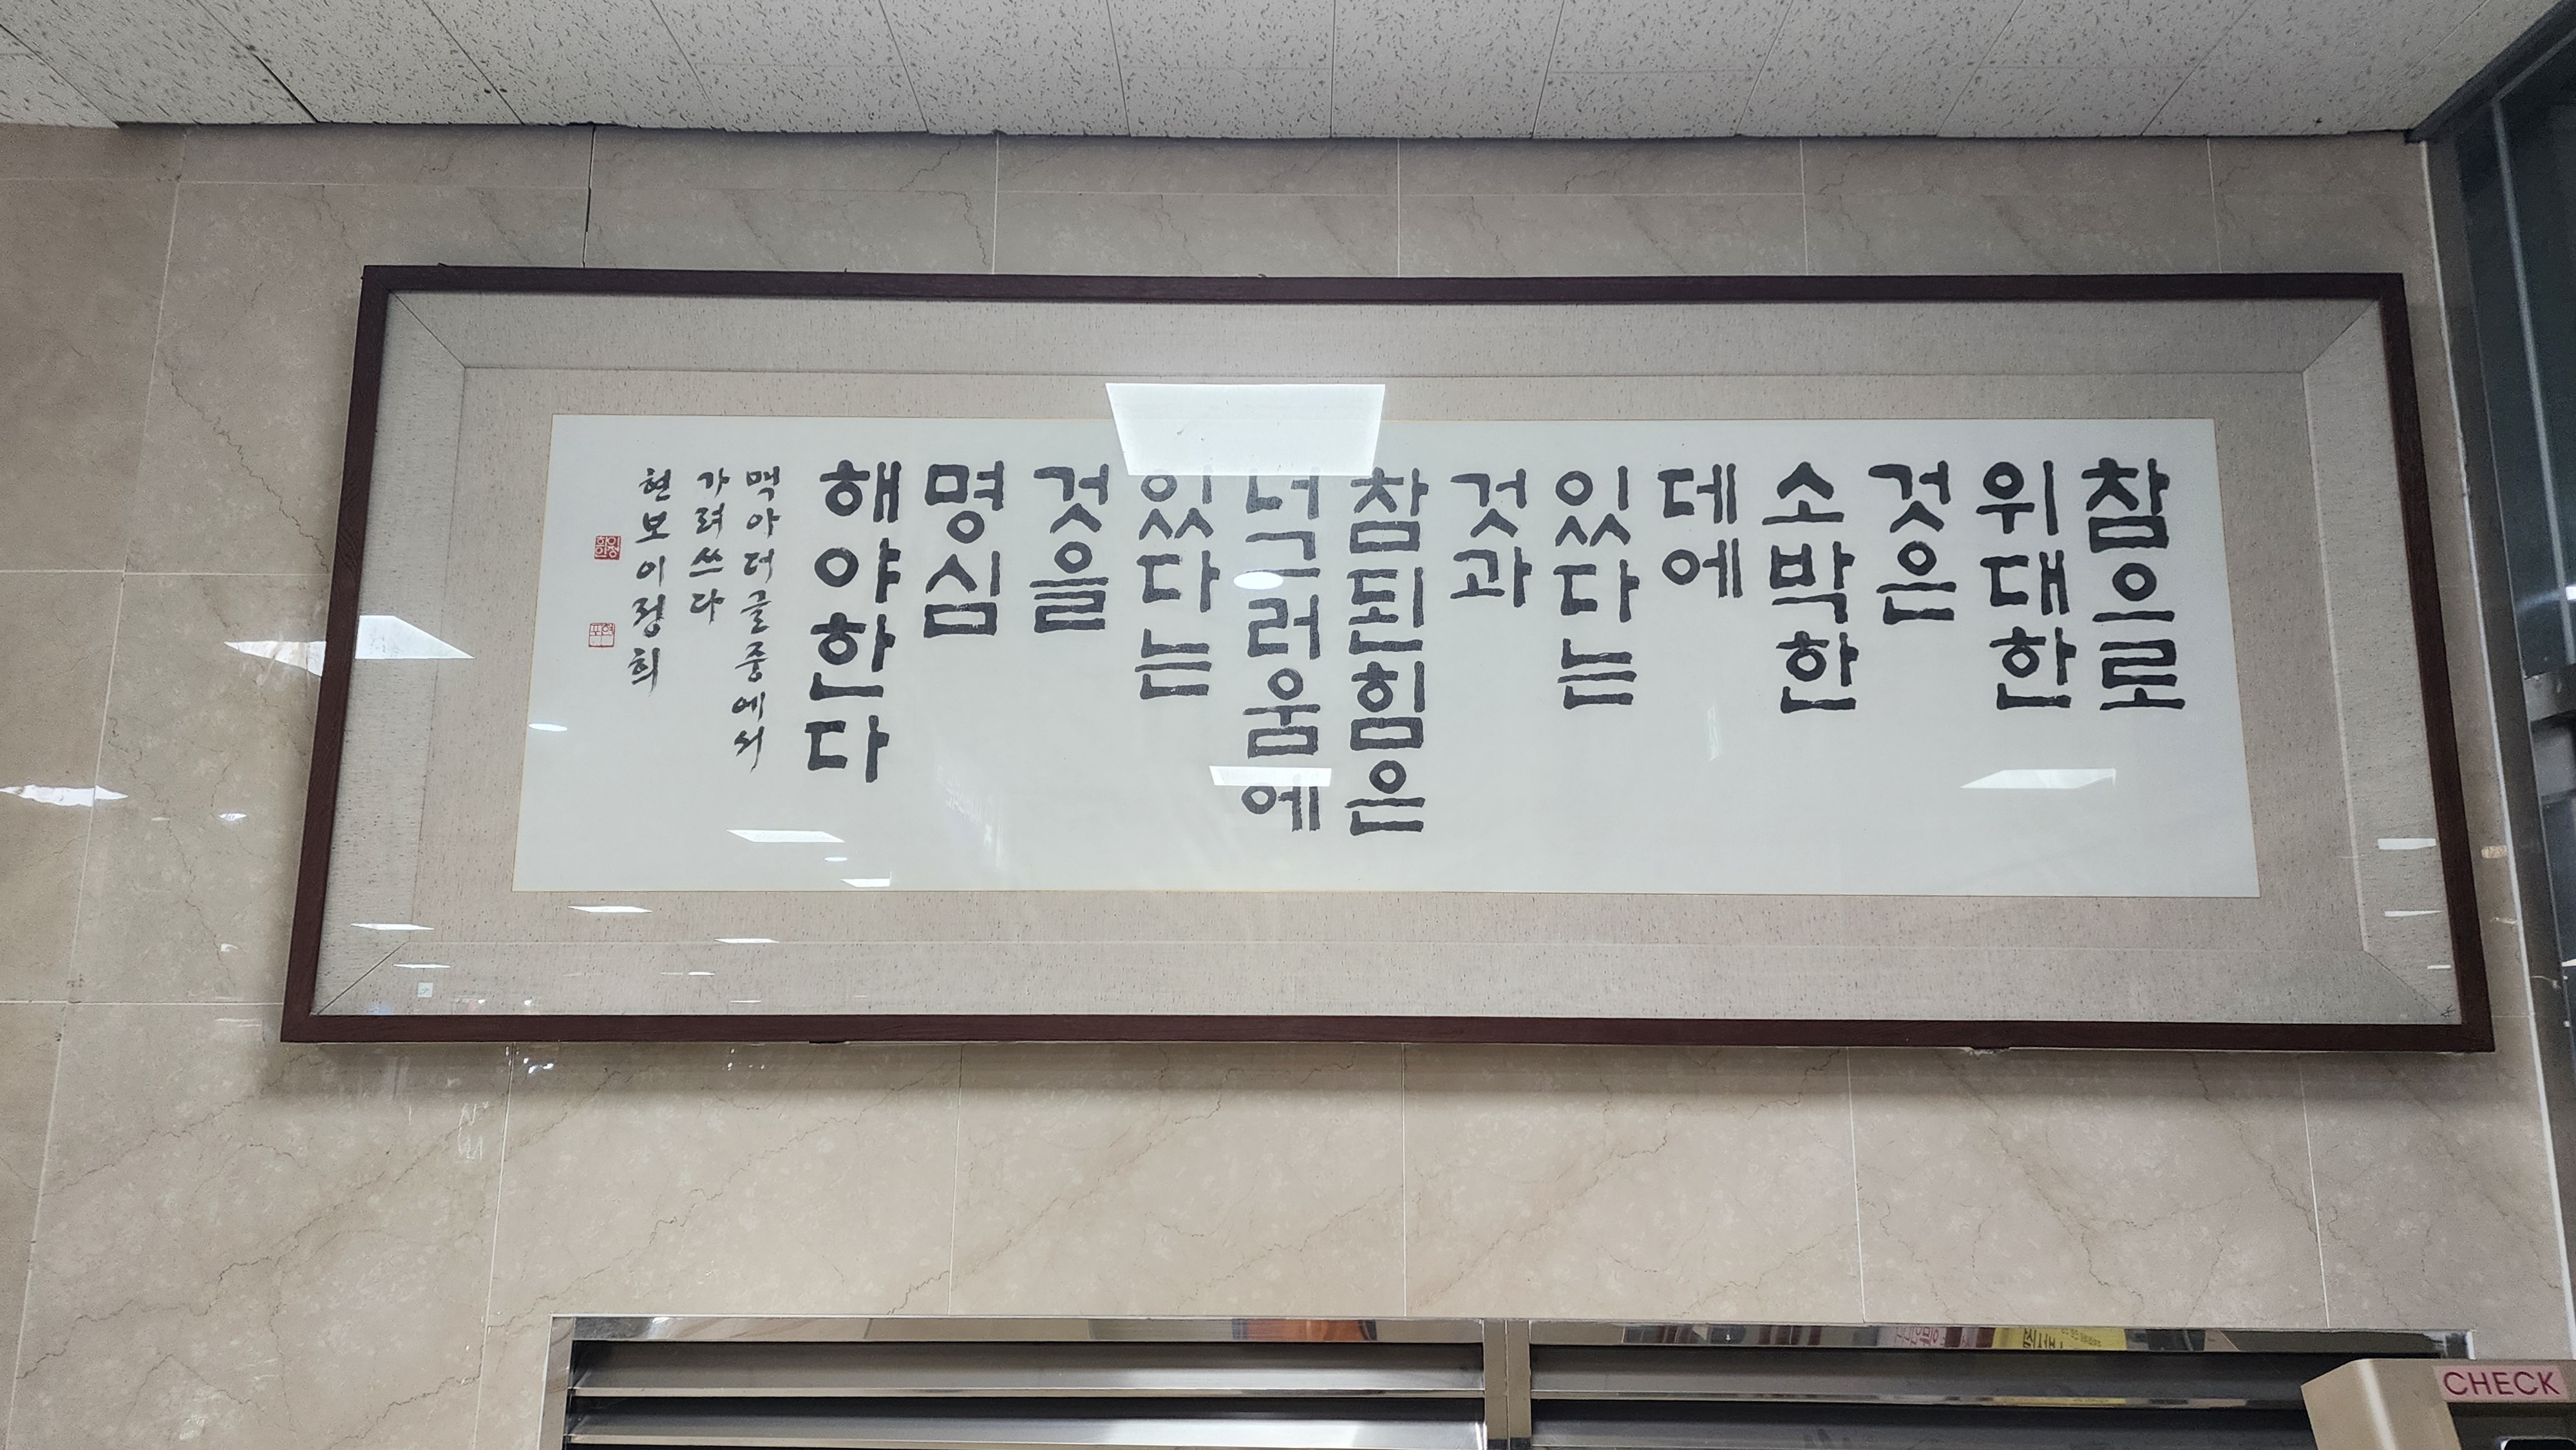 참으로
위대한
것은
소박한
데에
있다는
것과
참된힘은
너그러움에
있다는
것을
명심
해야한다
맥아더글중에서
가려쓰다
현보이정희
CHECK